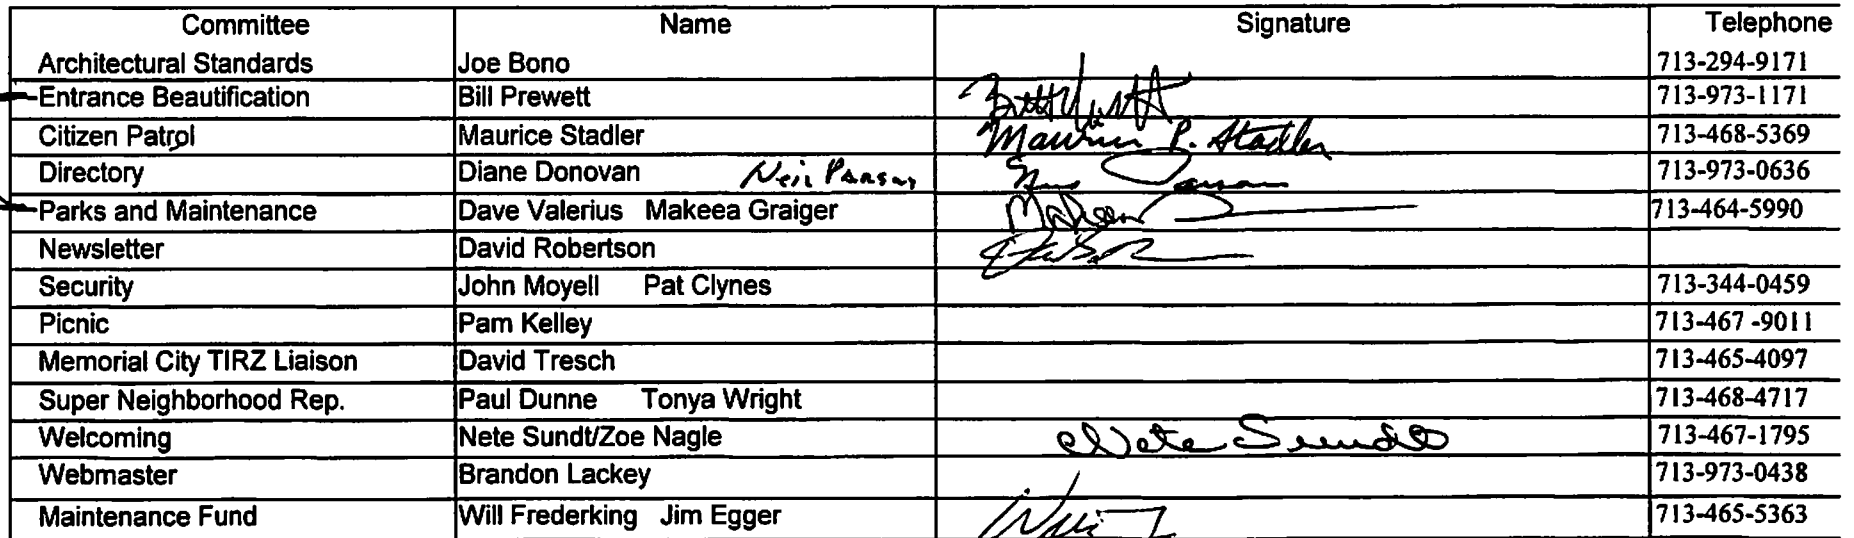 Committee Name Signature Telephone
Architectural Standards Joe Bono 713-294-9171
Entrance Beautification Bill Prewett 713-973-1171
Citizen Patrol Maurice Stadler Maurice P. Stadler 713-468-5369
Directory Diane Donovan Neil Parson 713-973-0636
Parks and Maintenance Dave Valerius Makeea Graiger Makeea 713-464-5990
Newsletter David Robertson
Security John Moyell Pat Clynes 713-344-0459
Picnic Pam Kelley 713-467 -9011
Memorial City TIRZ Liaison David Tresch 713-465-4097
Super Neighborhood Rep. Paul Dunne Tonya Wright 713-468-4717
Welcoming Nete Sundt/Zoe Nagle Nete Sundt 713-467-1795
Webmaster Brandon Lackey 713-973-0438
Maintenance Fund Will Frederking Jim Egger 713-465-5363